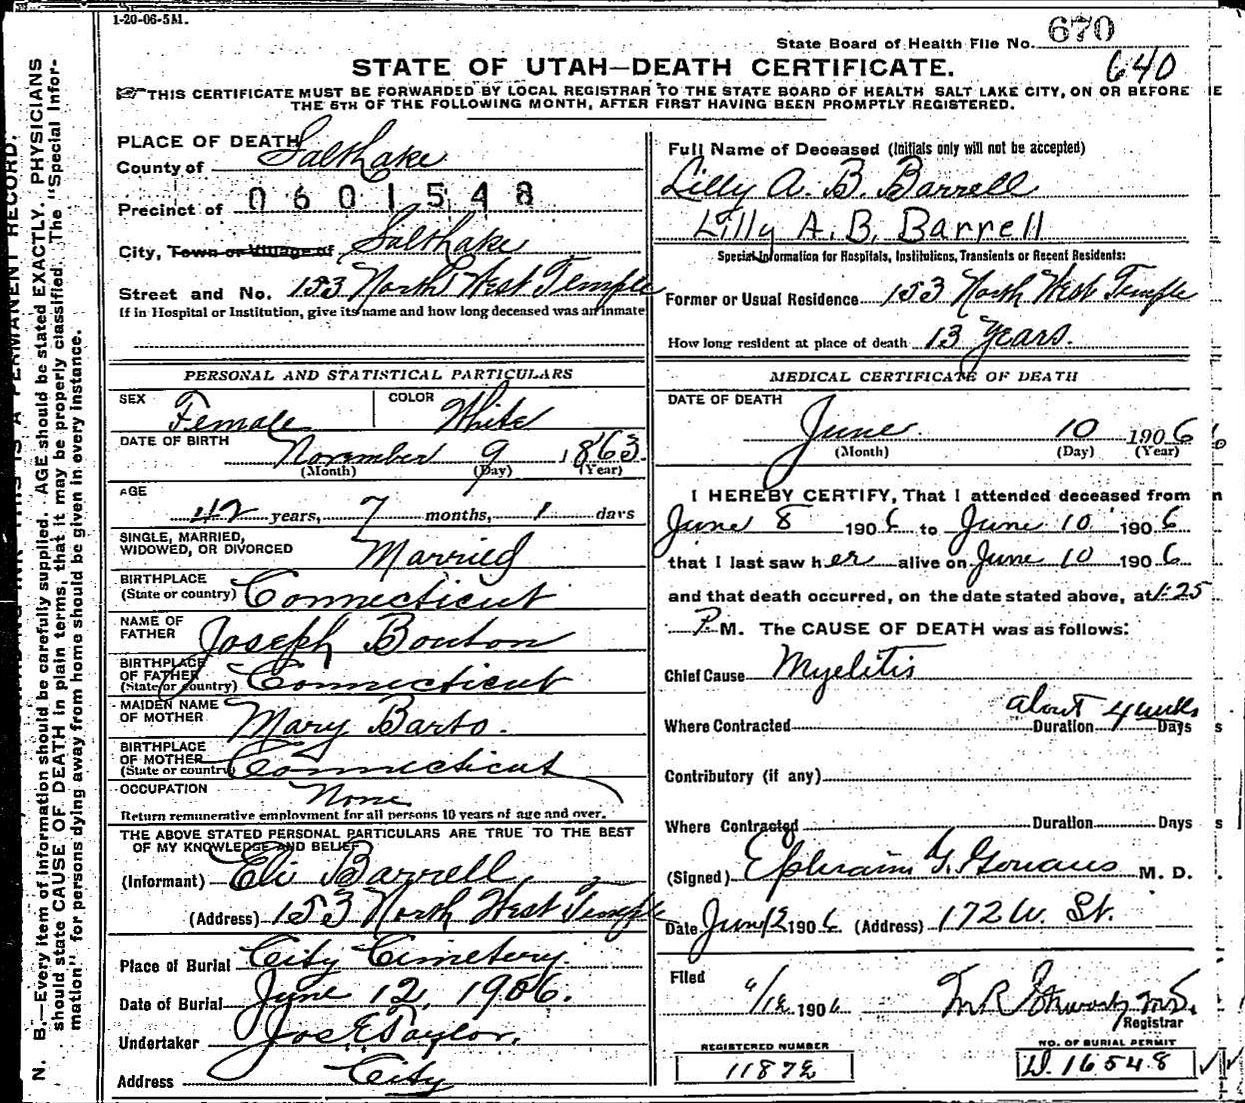 1-20-06-5M.
State Board of Health File No. 670
640
STATE OF UTAH—DEATH CERTIFICATE.
THIS CERTIFICATE MUST BE FORWARDED BY LOCAL REGISTRAR TO THE STATE BOARD OF HEALTH SALT LAKE CITY, ON OR BEFORE
THE 5TH OF THE FOLLOWING MONTH, AFTER FIRST HAVING BEEN PROMPTLY REGISTERED.
PLACE OF DEATH
County of Salt Lake
Precinct of 0601548
City, Town or Village of Salt Lake
Street and No. 153 North West Temple
If in Hospital or Institution, give its name and how long deceased was an inmate
Full Name of Deceased (Initials only will not be accepted)
Lilly A. B. Barrell
Lilly A. B. Barrell
Special Information for Hospitals, Institutions, Transients or Recent Residents:
Former or Usual Residence 153 North West Temple
How long resident at place of death 13 Years.
PERSONAL AND STATISTICAL PARTICULARS
SEX Female COLOR White
DATE OF BIRTH November 9 1863
(Month) (Day) (Year)
AGE
42 years, 7 months, 1 days
SINGLE, MARRIED,
WIDOWED, OR DIVORCED Married
BIRTHPLACE
(State or country) Connecticut
NAME OF
FATHER Joseph Bouton
BIRTHPLACE
OF FATHER
(State or country) Connecticut
MAIDEN NAME
OF MOTHER Mary Barto.
BIRTHPLACE
OF MOTHER
(State or country) Connecticut
OCCUPATION None
Return remunerative employment for all persons 10 years of age and over.
THE ABOVE STATED PERSONAL PARTICULARS ARE TRUE TO THE BEST
OF MY KNOWLEDGE AND BELIEF
(Informant) Eli Barrell
(Address) 153 North West Temple
Place of Burial City Cemetery.
Date of Burial June 12, 1906.
Undertaker Jos E Taylor.
Address City
MEDICAL CERTIFICATE OF DEATH
DATE OF DEATH
June 10 1906
(Month) (Day) (Year)
I HEREBY CERTIFY, That I attended deceased from
June 8 1906 to June 10 1906
that I last saw her alive on June 10 1906
and that death occurred, on the date stated above, at 1:25
P. M. The CAUSE OF DEATH was as follows:
Chief Cause Myelitis
Where Contracted Duration about 4 weeks Days
Contributory (if any)
Where Contracted Duration Days
(Signed) Ephraim G. M. D.
Date June 12 1906 (Address) 172 W. St.
Filed 6/12 1906
Registrar
REGISTERED NUMBER
11872
NO. OF BURIAL PERMIT
D. 16548
N. B.—Every item of information should be carefully supplied. AGE should be stated EXACTLY. PHYSICIANS
should state CAUSE OF DEATH in plain terms, that it may be properly classified. The "Special Infor-
mation" for persons dying away from home should be given in every instance.